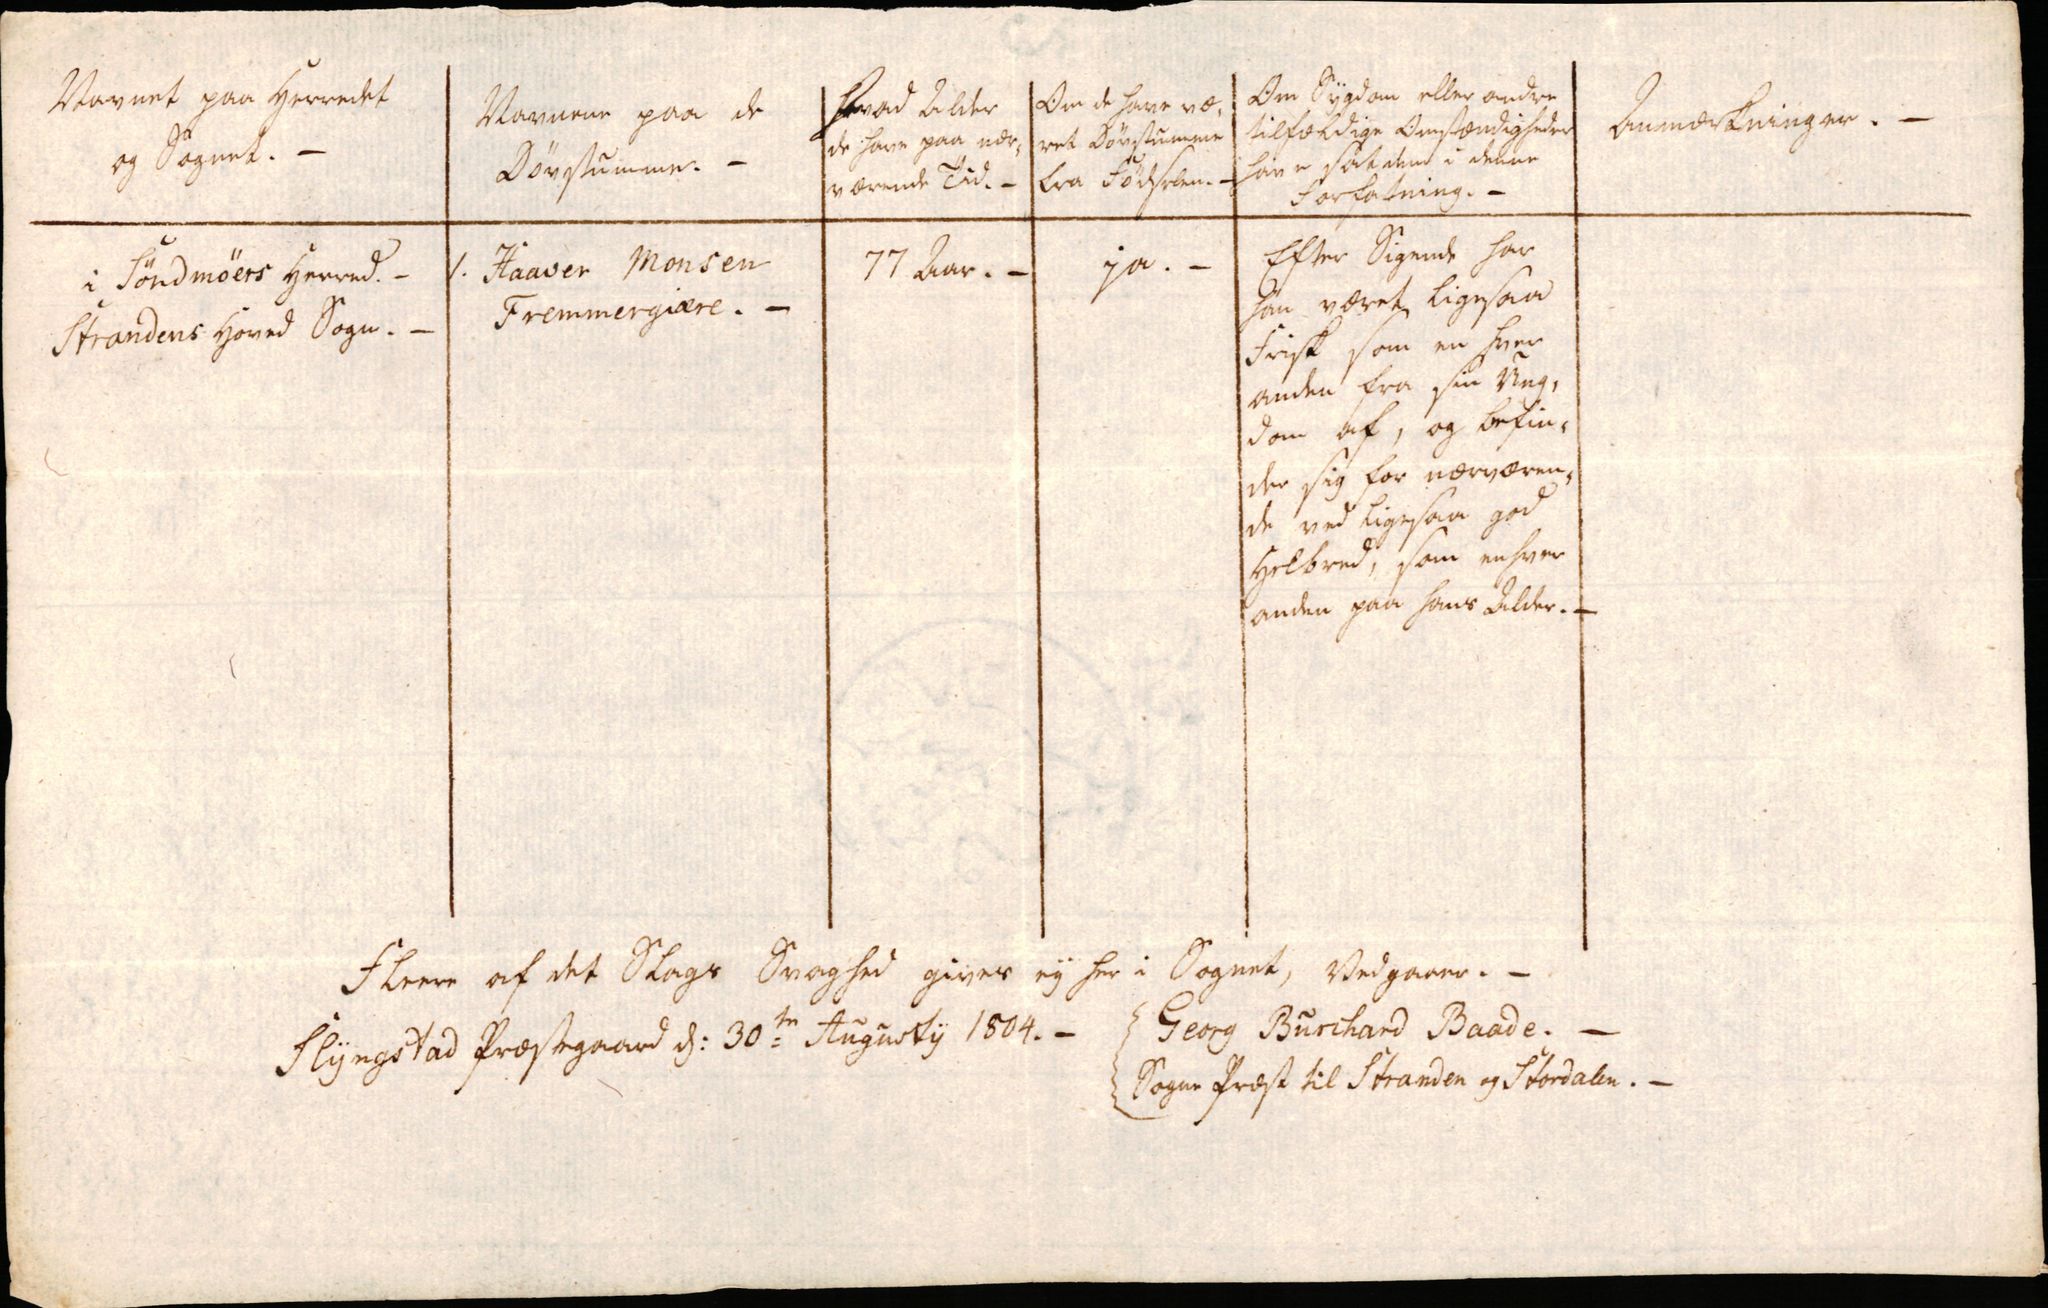 Navnet paa Herredet
og Sognet. -
Navnene paa de
Døvstumme. -
Hvad Alder
de have paa nær-
værende Tid. -
Om de have væ-
ret Døvstumme
fra Fødselen. -
Om Sygdom eller andre
tilfældige Omstændigheder
have sat dem i denne
Forfatning. -
Anmærkninger. -
i Söndmöers Herred. -
Strandens Hoved Sogn. -
1. Haaver Monsen
Fremmergiære. -
77 Aar. -
ja. -
Efter Sigende har
han været ligesaa
Frisk som en hver
anden fra sin Ung-
dom af, og befin-
der sig for nærværen-
de ved ligesaa god
Helbred, som enhver
anden paa hans Alder. -
Fleere af det Slags Svaghed gives ey her i Sognet, Vedgaaer. -
Slyngstad Præstegaard d: 30te Augusty 1804. -
Georg Burchard Baade. -
Sogne Præst til Stranden og Stordalen. -